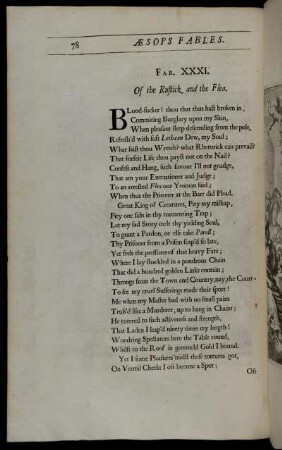 78 ÆSOPS FABLES.
FAB. XXXI.
Of the Rustick, and the Flea.
BLood-sucker! thou that thus hast broken in,
Commiting Burglary upon my Skin,
When pleasant sleep descending from the pole,
Refresh'd with soft Lethean Dew, my Soul;
What saist thou Wretch? what Rhetorick can prevail?
That forfeit Life thou payst not on the Nail?
Confess and Hang, such favour I'll not grudge,
That am your Executioner and Judge;
To an arrested Flea our Yeoman said;
When thus the Prisoner at the Barr did Plead.
Great King of Creatures, Pity my mishap,
Pity one fast in thy tormenting Trap;
Let my sad Story melt thy yielding Soul,
To grant a Pardon, or else take Parol;
Thy Prisoner from a Prison scap'd so late,
Yet feels the pressures of that heavy Fate;
Where I lay shackled in a pondrous Chain
That did a hundred golden Links contain;
Throngs from the Town and County, nay, the Court
To see my cruel Suff'rings made their sport!
Me when my Master had with no small pains
Truss'd like a Murderer, up to hang in Chains;
He tutored to such activeness and strength,
That Laden I leap'd ninety times my length!
Wondring Spectators bore the Table round,
Whilst to the Roof in gemmed Gold I bound.
Yet I some Pleasures 'midst these tortures got,
On Vermil Cheeks I oft became a Spot;
Oft